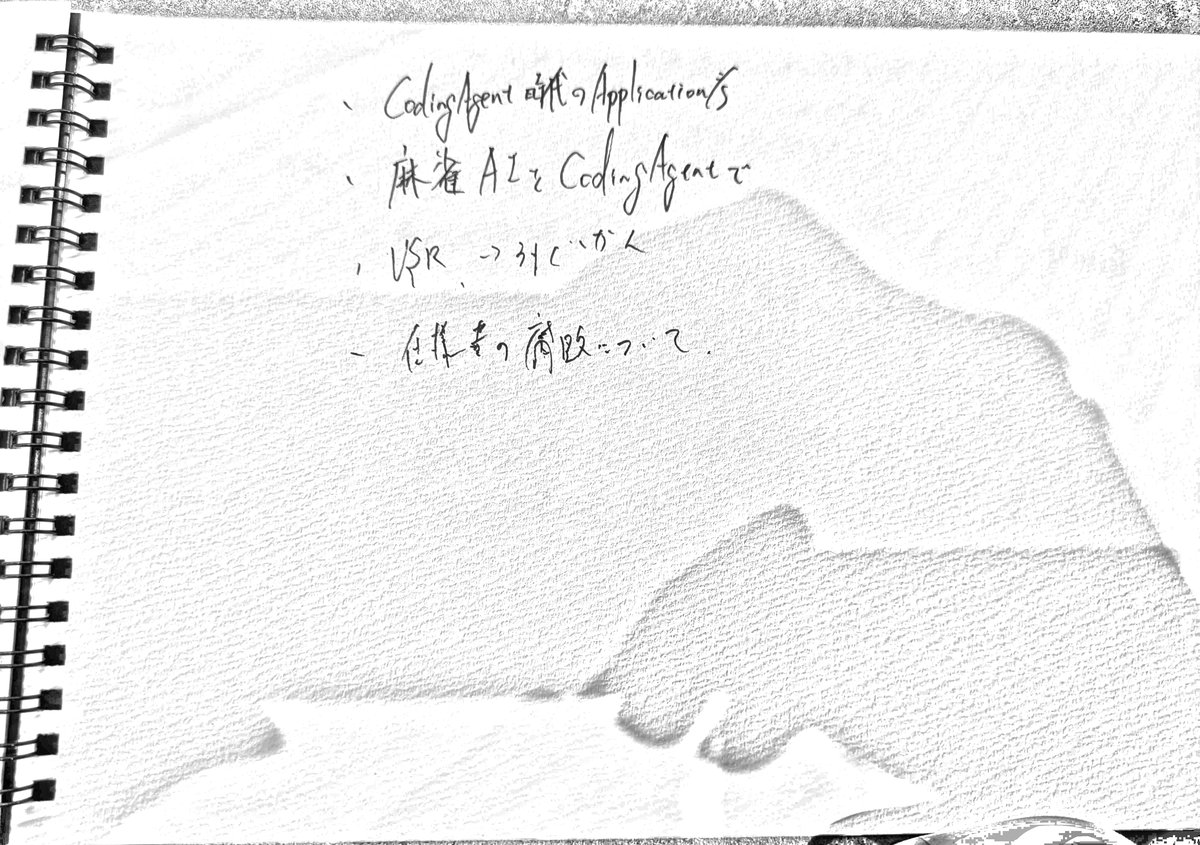 、CodingAgent 時代の Application/s
、麻雀AIをCodingAgentで
、VSR →
、仕様書の腐敗について.